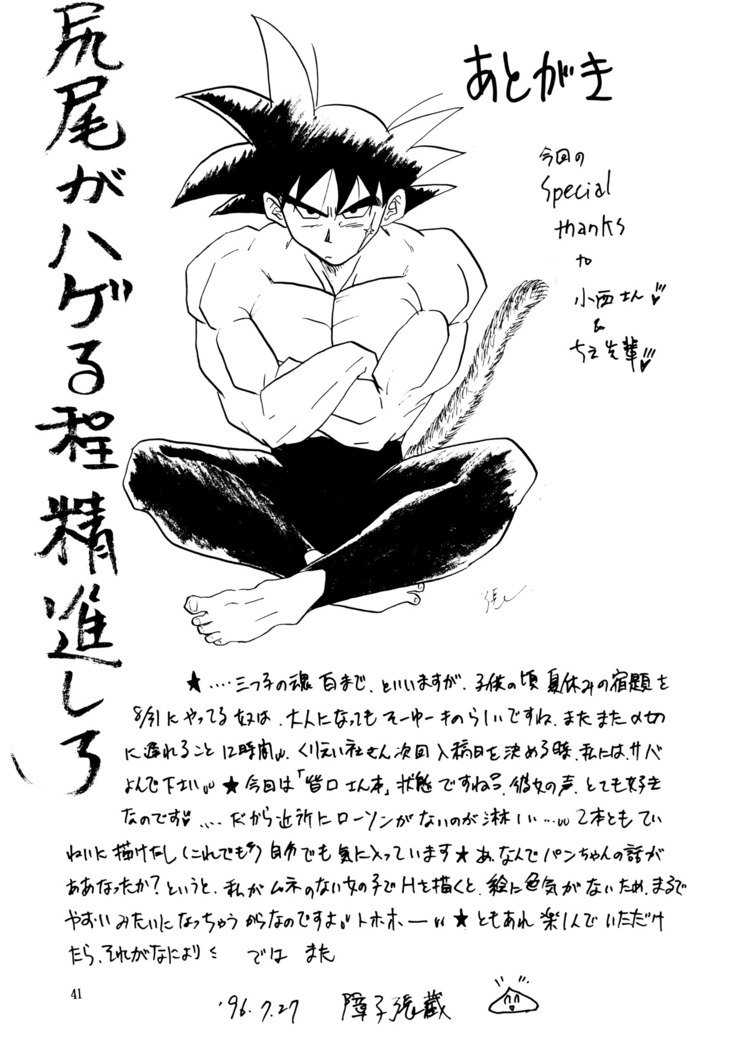 あとがき
今回の
Special
thanks
to
小西さん
&
ちえ先輩
尻尾がハゲる程精進しろ
★‥‥三つ子の魂百まで、といいますが、子供の頃夏休みの宿題を
8/31にやってる奴は、大人になってもそーゆーものらしいですね、またまた〆切
に遅れること12時間。くりえい社さん次回入稿日を決める時、私にはサバ
よんで下さい。★今回は「皆口さん本」状態ですね、彼女の声、とても好き
なのです‥‥だから近所にローソンがないのが淋しい…2本ともてい
ねいに描けたし(これでも)自分でも気に入っています★あ、なんでパンちゃんの話が
ああなったか?というと、私がムネのない女の子でHを描くと、絵に色気がないため、まるで
やおいみたいになっちゃうからなのですよ トホホー ★ともあれ楽しんでいただけ
たら、それがなにより では また
'96.7.27 障子張蔵
41